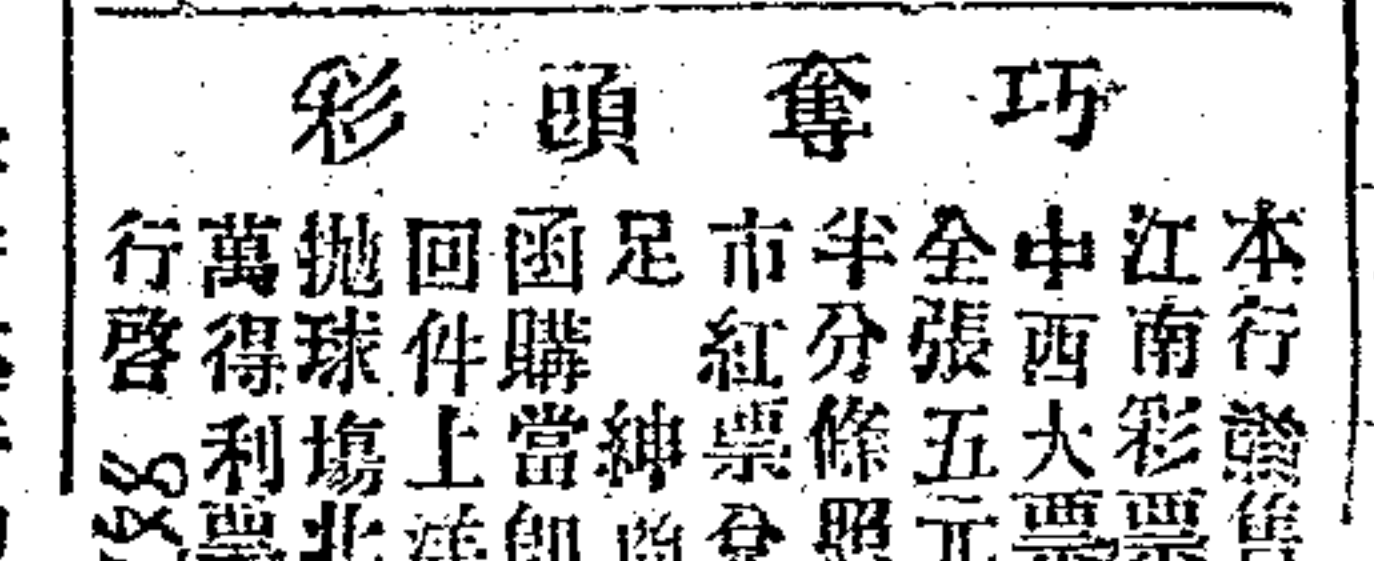 巧奪頭彩
本行躉售
江南彩票
中西大票
全張五元
半分條照
市紅票兌
足 紳商
函購當即
回件上洋
拋球塲北
萬得利票
行啓